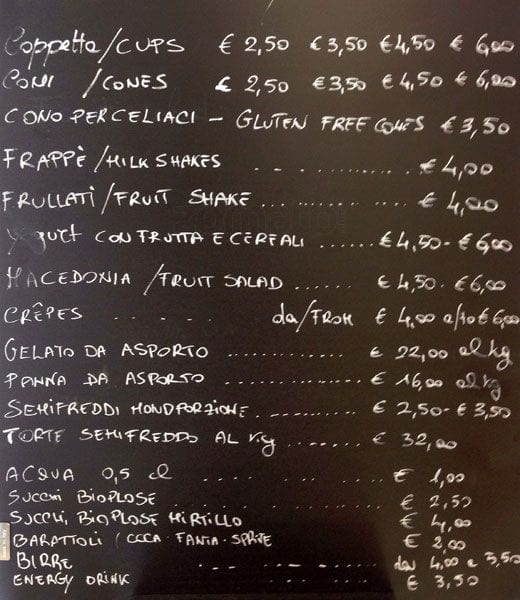 Coppetta/CUPS € 2,50 € 3,50 € 4,50 € 6,00
CONI /CONES € 2,50 € 3,50 € 4,50 € 6,00
CONO PER CELIACI - GLUTEN FREE CONES € 3,50
FRAPPÈ/MILK SHAKES .. . ........ € 4,00
FRULLATI/FRUIT SHAKE .. ............ € 4,00
Yogurt CON FRUTTA E CEREALI ...... € 4,50 - € 6,00
MACEDONIA /FRUIT SALAD ...... € 4,50 - € 6,00
CRÊPES . . . . . da/FROM € 4,00 a/to € 6,00
GELATO DA ASPORTO .............. € 22,00 al kg
PANNA DA ASPORTO .............. € 16,00 al kg
SEMIFREDDI MONOPORZIONE ........... € 2,50 - € 3,50
TORTE SEMIFREDDO AL Kg ........ € 32,00
ACQUA 0,5 cl ....... € 1,00
SUCCHI BIOPLOSE € 2,50
SUCCHI BIOPLOSE MIRTILLO € 4,00
BARATTOLI / COCA - FANTA - SPRITE € 2,00
BIRRE .. ... ........ da 4,00 a 3,50
ENERGY DRINK .. ... ........ € 3,50